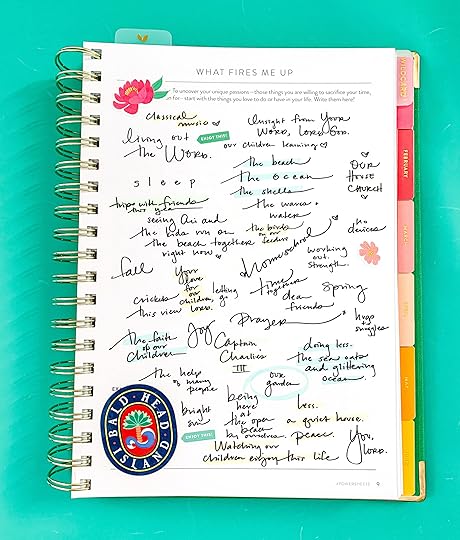 WHAT FIRES ME UP
To uncover your unique passions – those things you are willing to sacrifice your time,
for – start with the things you love to do or have in your life. Write them here!
classical
music
Insight from Your
WORD, LORD GOD.
living out
the WORD.
ENJOY THIS!
our children learning
sleep
the beach
the ocean
the shells
the waves
water
OUR
HOUSE
CHURCH
trips with friends
this year
seeing Ari and
the kids run on
the beach together
right now
the birds
on our
feeders
no
devices
fall
Your
love
for
our
children,
LORD.
homeschool
working
out.
strength.
crickets
this view
letting
go
time
together
dear
friends
spring
Joy
Prayer
hugs +
snuggles
the faith
of our
children
Captain
Charlie's
III
doing less.
the sea oats
and glittering
ocean.
the help
of many
people
our
garden
BALD HEAD
ISLAND
bright
sun
being
here
at
the open
beach
by ourselves
less.
a quiet house.
peace.
You,
LORD.
ENJOY THIS!
Watching our
children enjoy this life
#POWERSHEETS
9
WILDCARD
FEBRUARY
MARCH